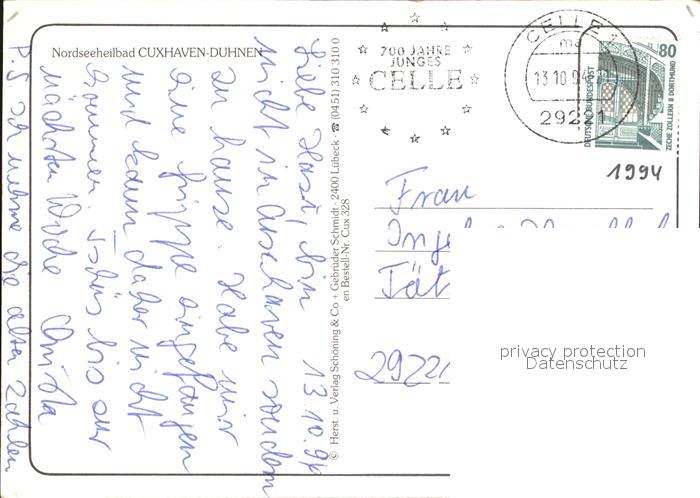 Nordseeheilbad CUXHAVEN-DUHNEN
700 JAHRE
JUNGES
CELLE
CELLE 1
ma
13.10.94
29221
80
DEUTSCHE BUNDESPOST
ZECHE ZOLLERN II DORTMUND
1994
13.10.94
Liebe Hasi, bin
nicht in Cuxhaven sondern
zu hause. Habe mir
eine Grippe eingefangen
und kann daher nicht
kommen. Tschüs bis zur
nächsten Woche Christa
P.S. Ich nehme die alten Zahlen
© Herst. u. Verlag Schöning & Co + Gebrüder Schmidt · 2400 Lübeck · ☎ (0451) 310 310 0
en Bestell-Nr. Cux 328
Frau
29221
privacy protection
Datenschutz